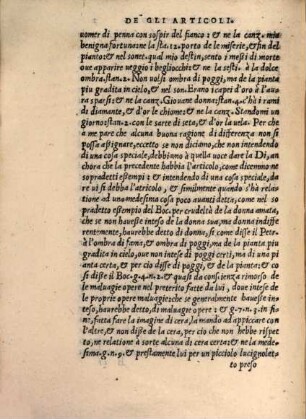 DE GLI ARTICOLI.
uomer di penna con sospir del fianco : & ne la canz. mia
benigna fortuna ne la stan.12. porto de le miserie, & fin del
pianto: & nel sonet. qual mio destin, sento i messi di morte
oue apparire ueggio i begliocchi: & ne la sesti. à la dolce
ombra. stan.2. Non uolsi ombra di poggi, ma de la pianta
piu gradita in cielo, & nel son. Erano i capei d'oro à l'aura
sparsi: & ne la canz. Giouene donna. stan.4. c'hà i rami
di diamante, & d'or le chiome: & ne la canz. Standomi un
giorno stan.2. con le sarte di seta, & d'or la uela. Per che
a me pare che alcuna buona ragione di differenza non si
possa assignare, eccetto se non diciamo, che non intendendo
di una cosa speciale, debbiamo à quella uoce dare la Di, an
chora che la precedente habbia l'articolo, come dicemmo ne
sopradetti essempi : & intendendo di una cosa speciale, da
re ui si debba l'articolo, & similmente quando s'hà relatione
ad una medesima cosa poco auanti detta, come nel so
pradetto essempio del Boc. per crudeltà de la donna amata,
che se non hauesse inteso de la donna sua, ma donna indiffe
rentemente, haurebbe detto di donna, si come disse il Petr.
à l'ombra di fama, & ombra di poggi, ma de la pianta piu
gradita in cielo, oue non intese di poggi certi, ma di una pi
anta certa, & per cio disse di poggi, & de la pianta: & co
si disse il Boc. g.4.n.2. & quasi da conscienza rimorso de
le maluagie opere nel preterito fatte da lui, doue intese de
le proprie opere maluagie: che se generalmente hauesse in
teso, haurebbe detto, di maluagie opere : & g.7.n.3. in fi
ne, fatta fare la imagine di cera, la mando ad appiccare con
l'altre, & non disse de la cera, per cio che non hebbe rispet
to, ne relatione à sorte alcuna di cera certa: & ne la mede
sima. g.n.9. & prestamente lui per un picciolo lucignolet-
to preso